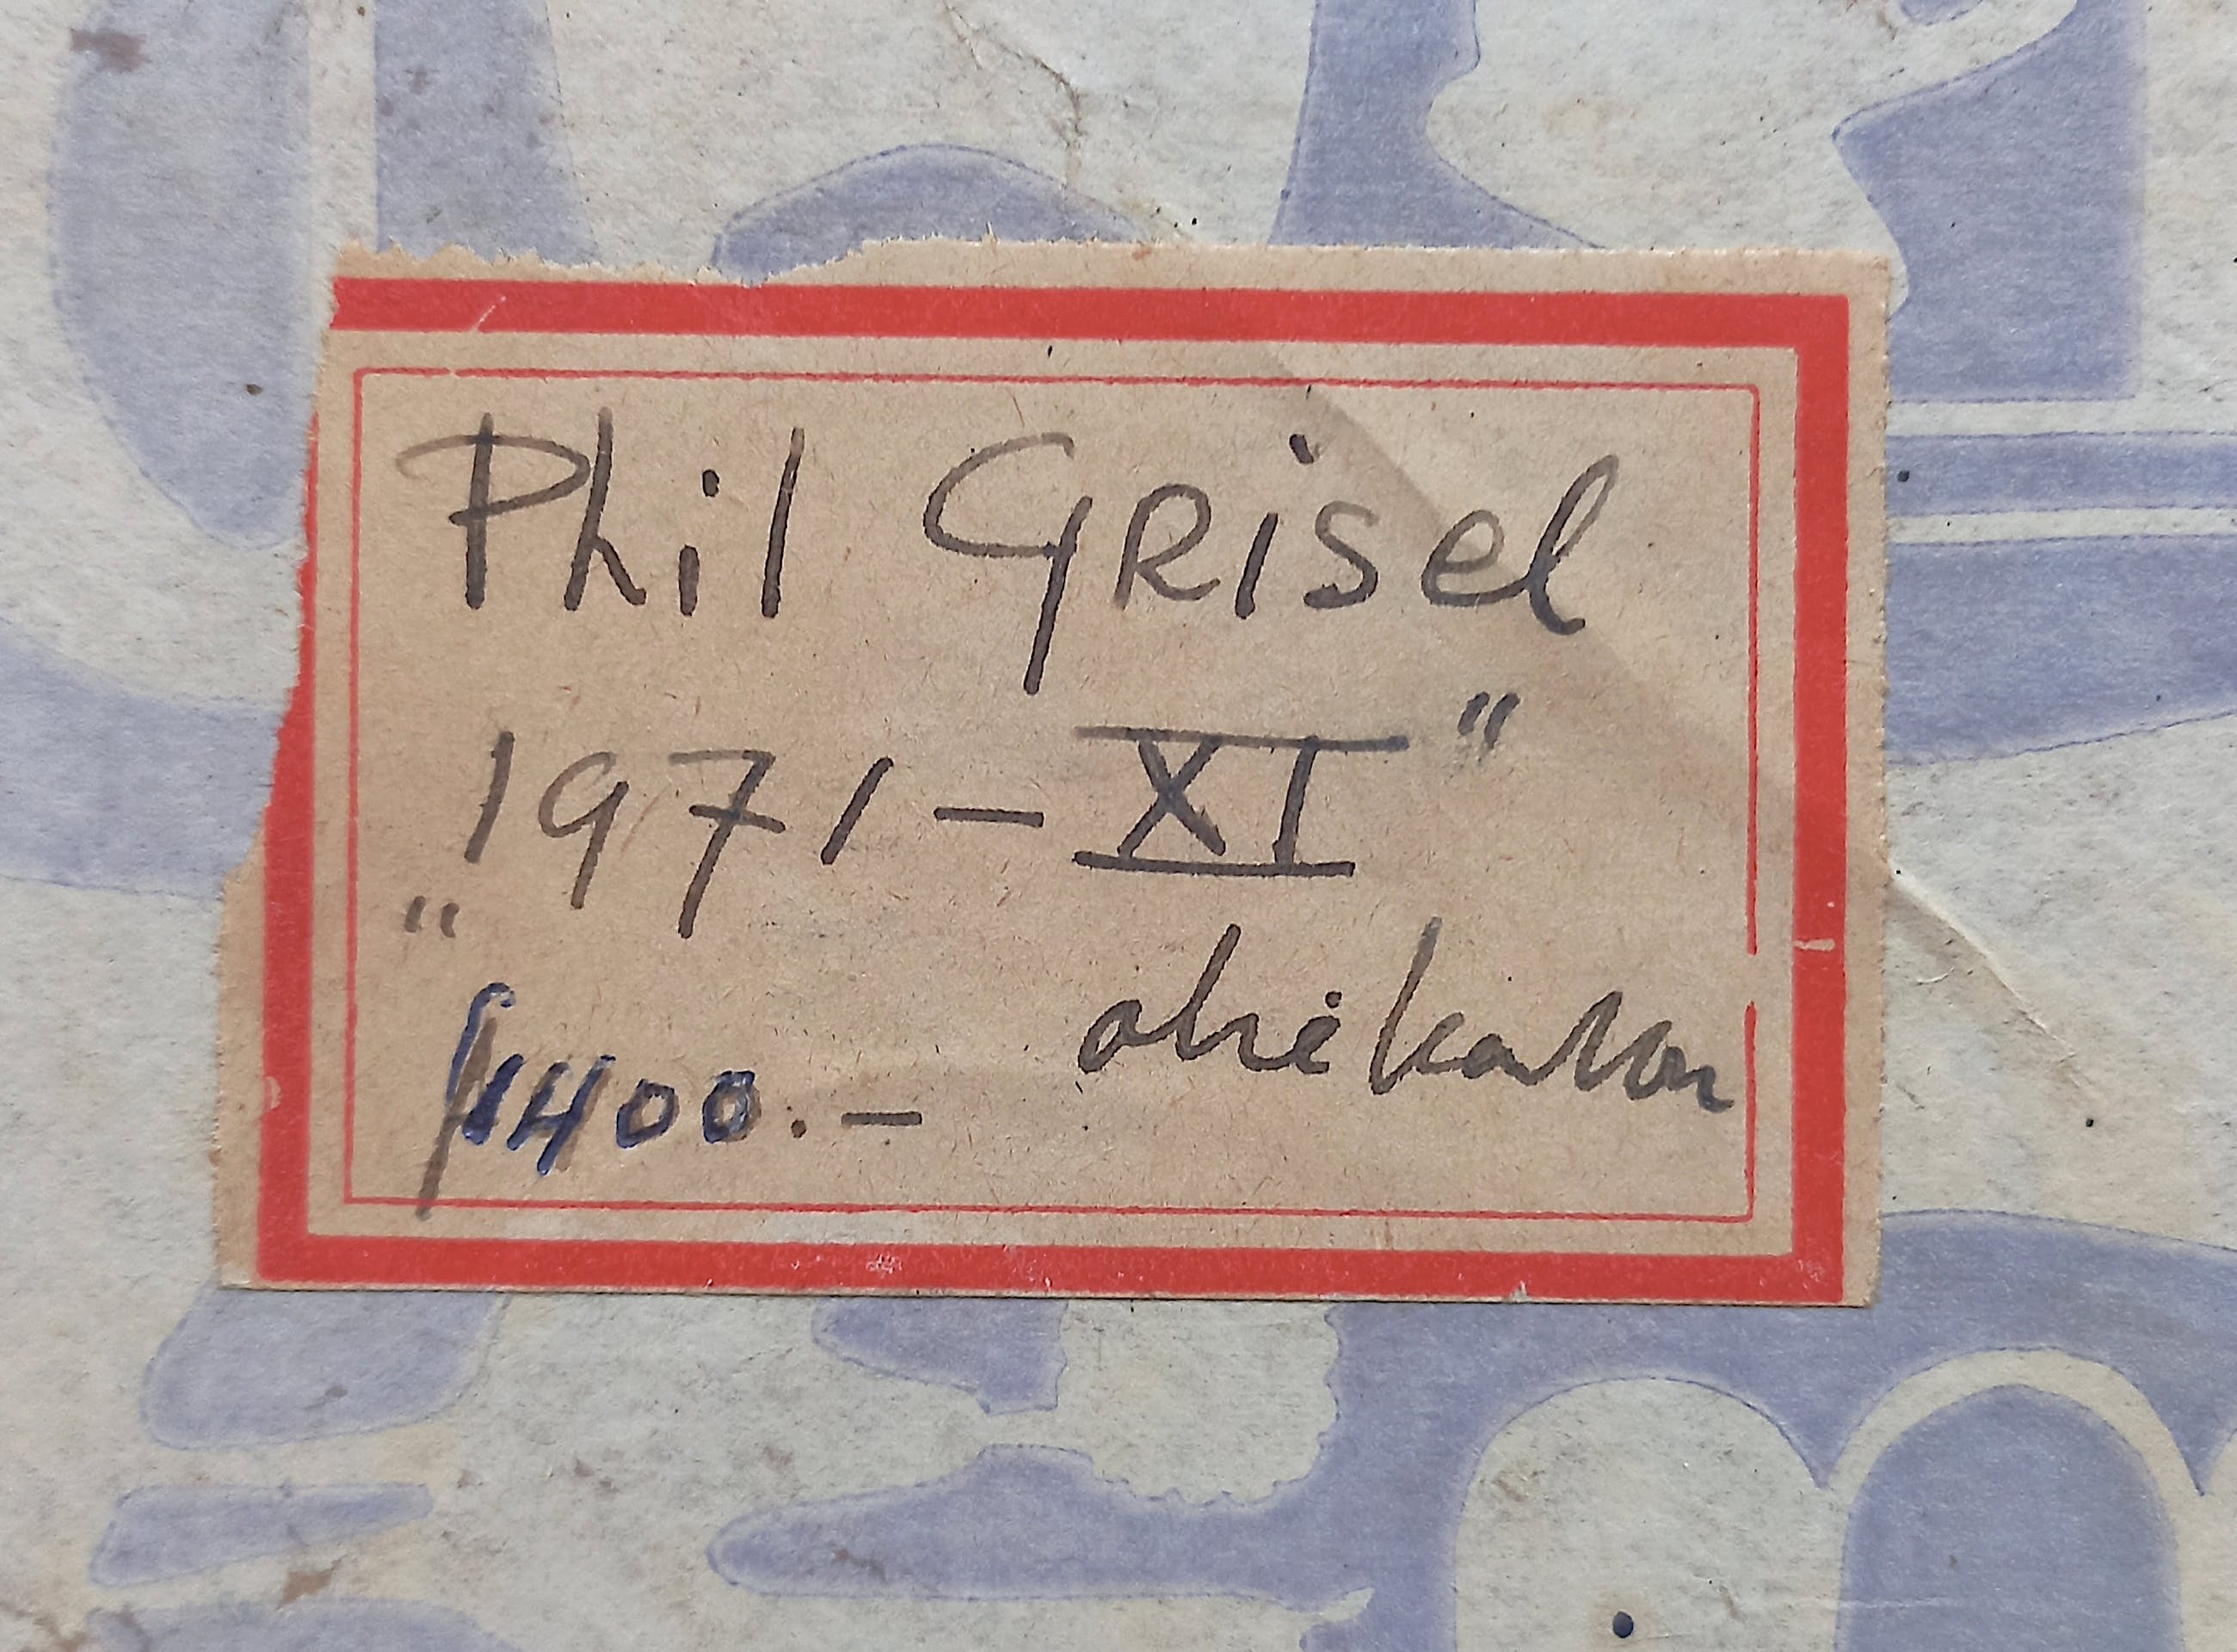 Phil GRisel
„1971 – XI"
ƒ1400.– olie/karton